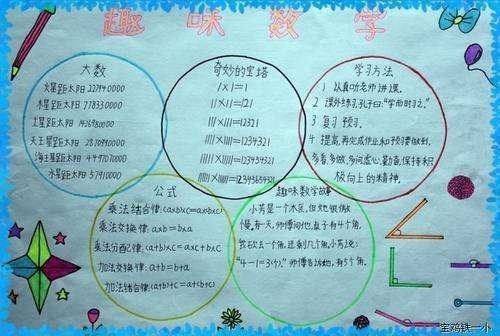 趣味数学
大数
火星距太阳 227940000
木星距太阳 778330000
土星距太阳 1429400000
天王星距太阳 2870990000
海王星距太阳 4497070000
水星距太阳 57910000
奇妙的宝塔
1×1=1
11×11=121
111×111=12321
1111×1111=1234321
11111×11111=123454321
111111×111111=12345654321
学习方法
1 认真听老师讲课。
2 课外练习,孔子曰:"学而时习之。"
3 复习 预习。
4 提高,再完成作业和预习要做到,
多看多做,多问虚心,勤奋,保持积
极向上的精神。
公式
乘法结合律:(a×b)×c=a×(b×c)
乘法交换律:a×b=b×a
乘法分配律:(a+b)×c=a×c+b×c
加法交换律:a+b=b+a
加法结合律:(a+b)+c=a+(b+c)
趣味数学故事
小芳是一个木匠,但文化很低
慢,有一天,师傅问他,桌子有4个角,
我砍去一个角,还剩几个角,小芳说:
"4-1=3(个)。"师傅告诉他,有5个角。
宝鸡铁一小